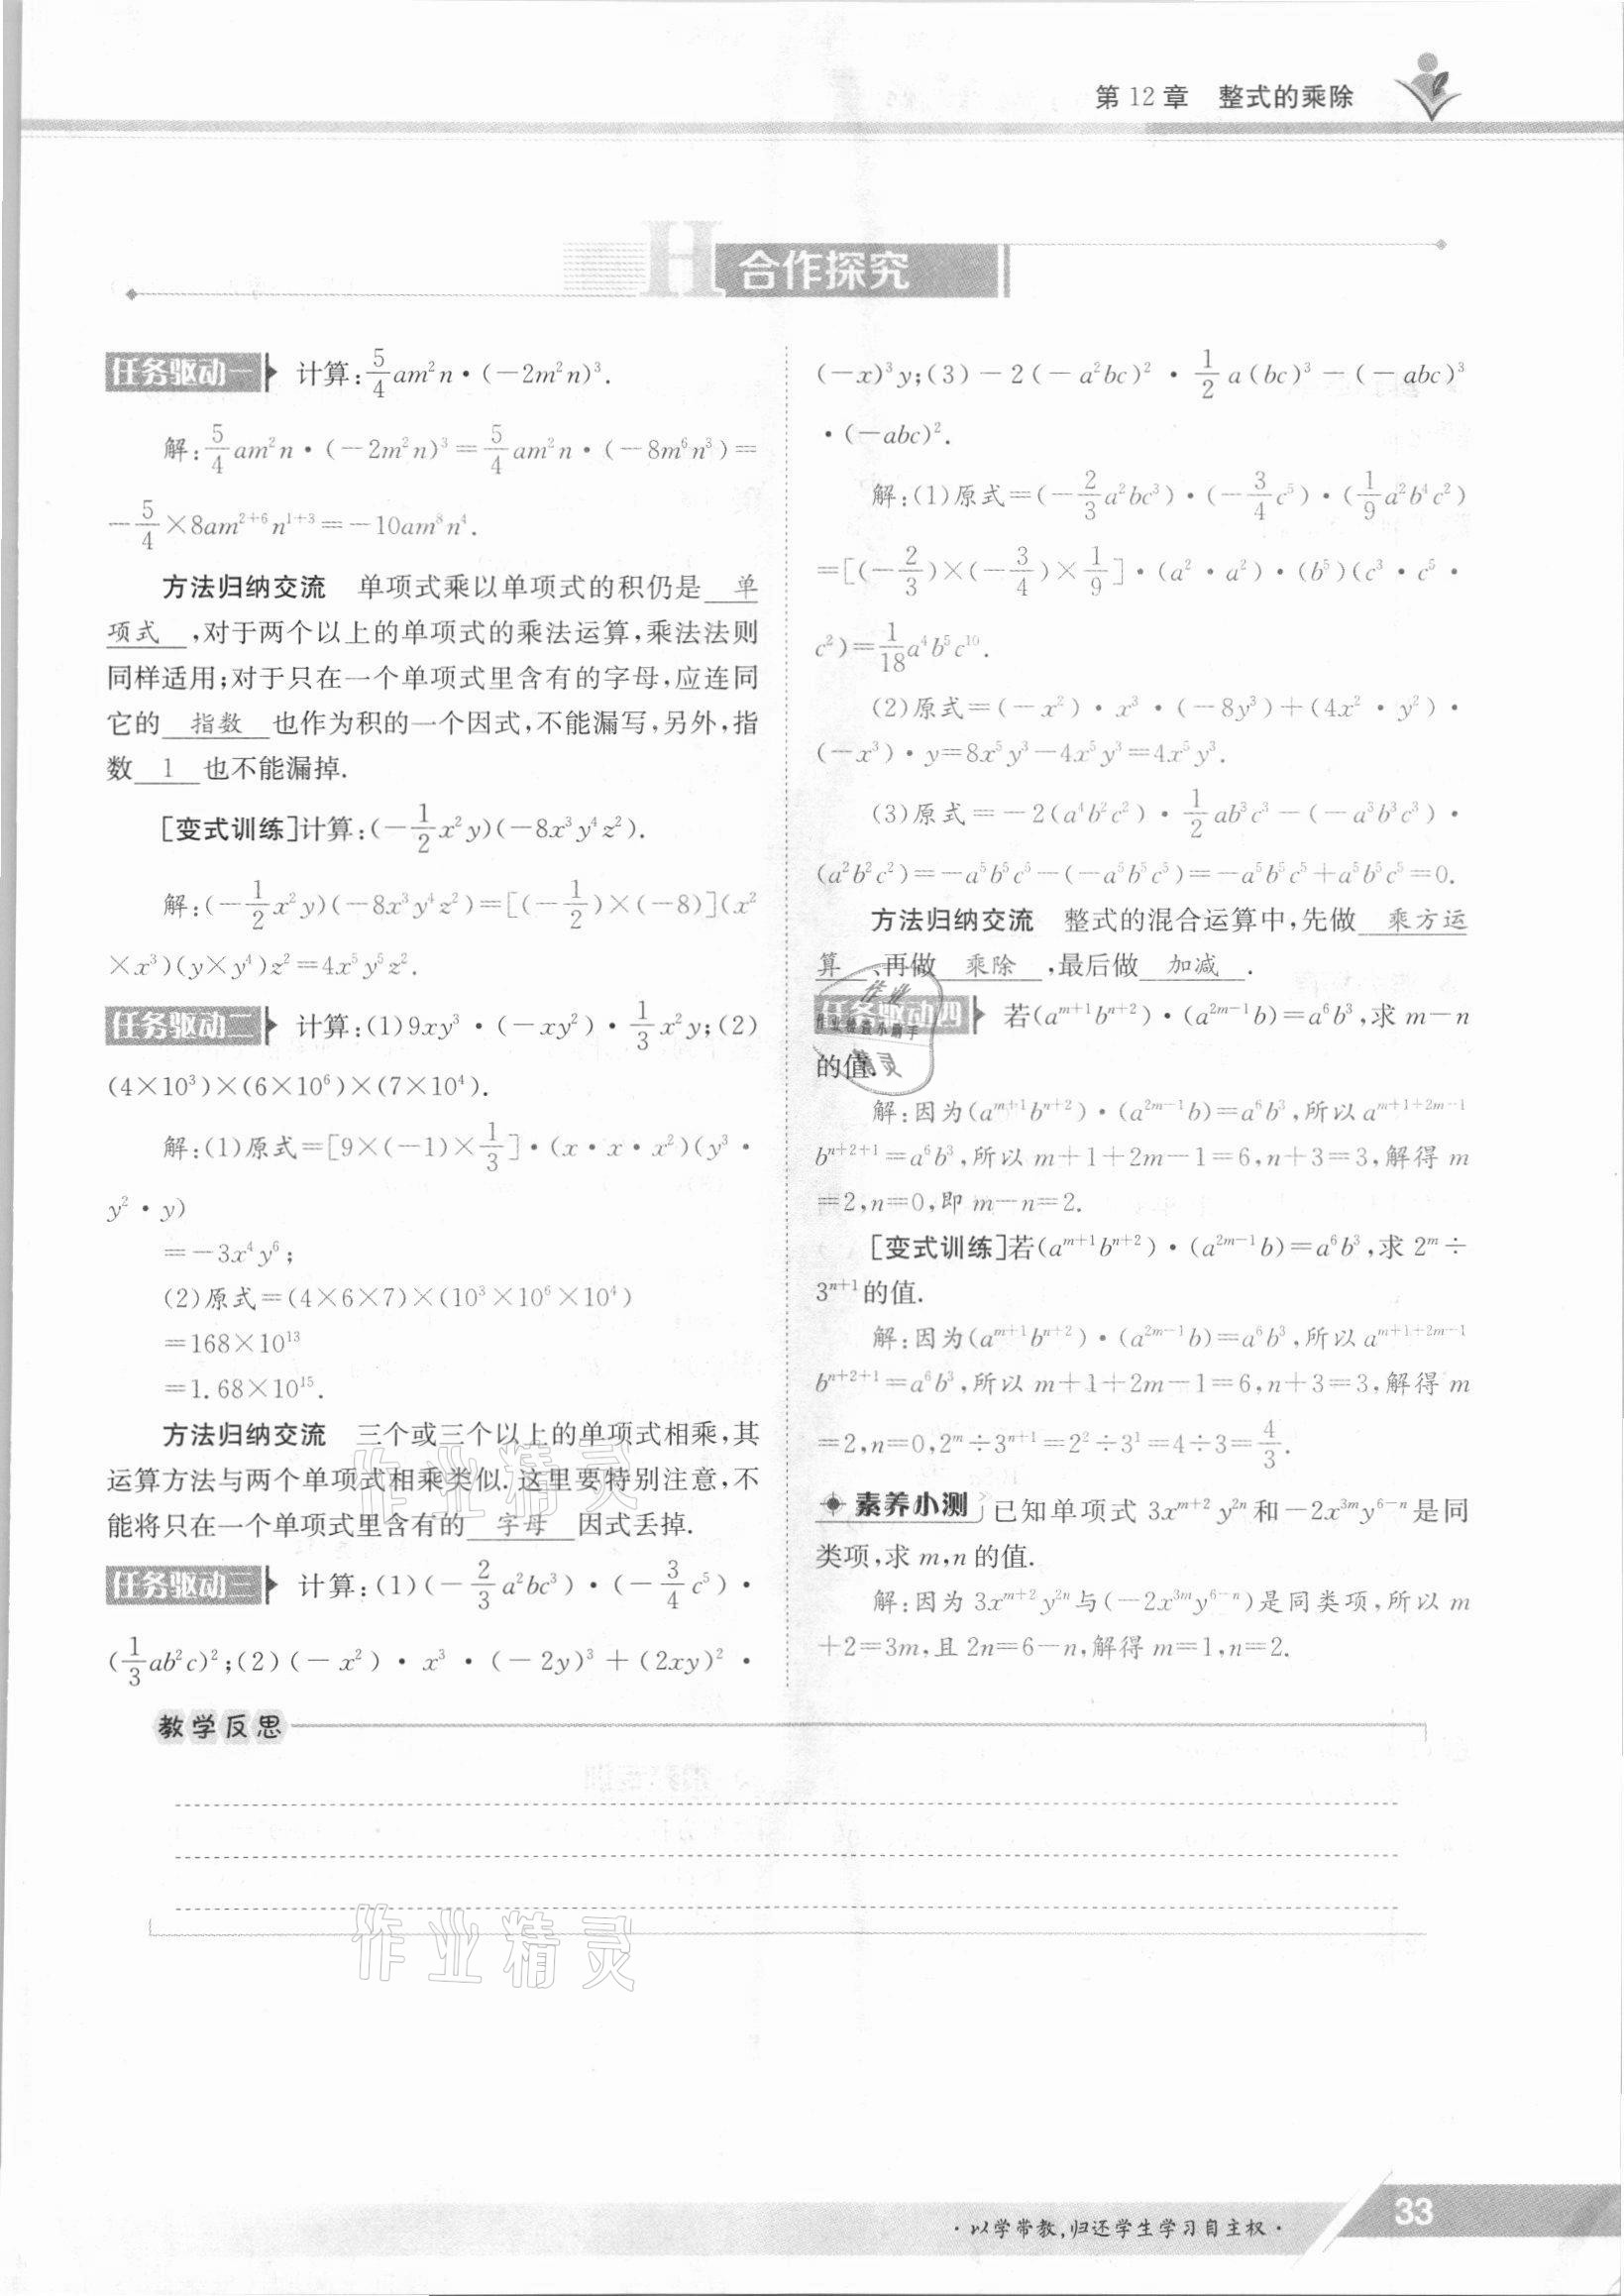 第12章 整式的乘除
H 合作探究
任务驱动一 计算:5/4am²n·(-2m²n)³.
解:5/4am²n·(-2m²n)³=5/4am²n·(-8m⁶n³)=
-5/4×8am²⁺⁶n¹⁺³=-10am⁸n⁴.
方法归纳交流 单项式乘以单项式的积仍是 单
项式 ,对于两个以上的单项式的乘法运算,乘法法则
同样适用;对于只在一个单项式里含有的字母,应连同
它的 指数 也作为积的一个因式,不能漏写,另外,指
数 1 也不能漏掉.
[变式训练]计算:(-1/2x²y)(-8x³y⁴z²).
解:(-1/2x²y)(-8x³y⁴z²)=[(-1/2)×(-8)](x²
×x³)(y×y⁴)z²=4x⁵y⁵z².
任务驱动二 计算:(1)9xy³·(-xy²)·1/3x²y;(2)
(4×10³)×(6×10⁶)×(7×10⁴).
解:(1)原式=[9×(-1)×1/3]·(x·x·x²)(y³·
y²·y)
=-3x⁴y⁶;
(2)原式=(4×6×7)×(10³×10⁶×10⁴)
=168×10¹³
=1.68×10¹⁵.
方法归纳交流 三个或三个以上的单项式相乘,其
运算方法与两个单项式相乘类似.这里要特别注意,不
能将只在一个单项式里含有的 字母 因式丢掉.
任务驱动三 计算:(1)(-2/3a²bc³)·(-3/4c⁵)·
(1/3ab²c)²;(2)(-x²)·x³·(-2y)³+(2xy)²·
(-x)³y;(3)-2(-a²bc)²·1/2a(bc)³-(-abc)³
·(-abc)².
解:(1)原式=(-2/3a²bc³)·(-3/4c⁵)·(1/9a²b⁴c²)
=[(-2/3)×(-3/4)×1/9]·(a²·a²)·(b⁵)(c³·c⁵·
c²)=1/18a⁴b⁵c¹⁰.
(2)原式=(-x²)·x³·(-8y³)+(4x²·y²)·
(-x³)·y=8x⁵y³-4x⁵y³=4x⁵y³.
(3)原式=-2(a⁴b²c²)·1/2ab³c³-(-a³b³c³)·
(a²b²c²)=-a⁵b⁵c⁵-(-a⁵b⁵c⁵)=-a⁵b⁵c⁵+a⁵b⁵c⁵=0.
方法归纳交流 整式的混合运算中,先做 乘方运
算 、再做 乘除 ,最后做 加减 .
任务驱动四 若(aᵐ⁺¹bⁿ⁺²)·(a²ᵐ⁻¹b)=a⁶b³,求m-n
的值.
解:因为(aᵐ⁺¹bⁿ⁺²)·(a²ᵐ⁻¹b)=a⁶b³,所以aᵐ⁺¹⁺²ᵐ⁻¹
bⁿ⁺²⁺¹=a⁶b³,所以m+1+2m-1=6,n+3=3,解得m
=2,n=0,即m-n=2.
[变式训练]若(aᵐ⁺¹bⁿ⁺²)·(a²ᵐ⁻¹b)=a⁶b³,求2ᵐ÷
3ⁿ⁺¹的值.
解:因为(aᵐ⁺¹bⁿ⁺²)·(a²ᵐ⁻¹b)=a⁶b³,所以aᵐ⁺¹⁺²ᵐ⁻¹
bⁿ⁺²⁺¹=a⁶b³,所以m+1+2m-1=6,n+3=3,解得m
=2,n=0,2ᵐ÷3ⁿ⁺¹=2²÷3¹=4÷3=4/3.
素养小测 已知单项式3xᵐ⁺²y²ⁿ和-2x³ᵐy⁶⁻ⁿ是同
类项,求m,n的值.
解:因为3xᵐ⁺²y²ⁿ与(-2x³ᵐy⁶⁻ⁿ)是同类项,所以m
+2=3m,且2n=6-n,解得m=1,n=2.
教学反思
作业精灵
作业精灵
·以学带教,归还学生学习自主权·
33